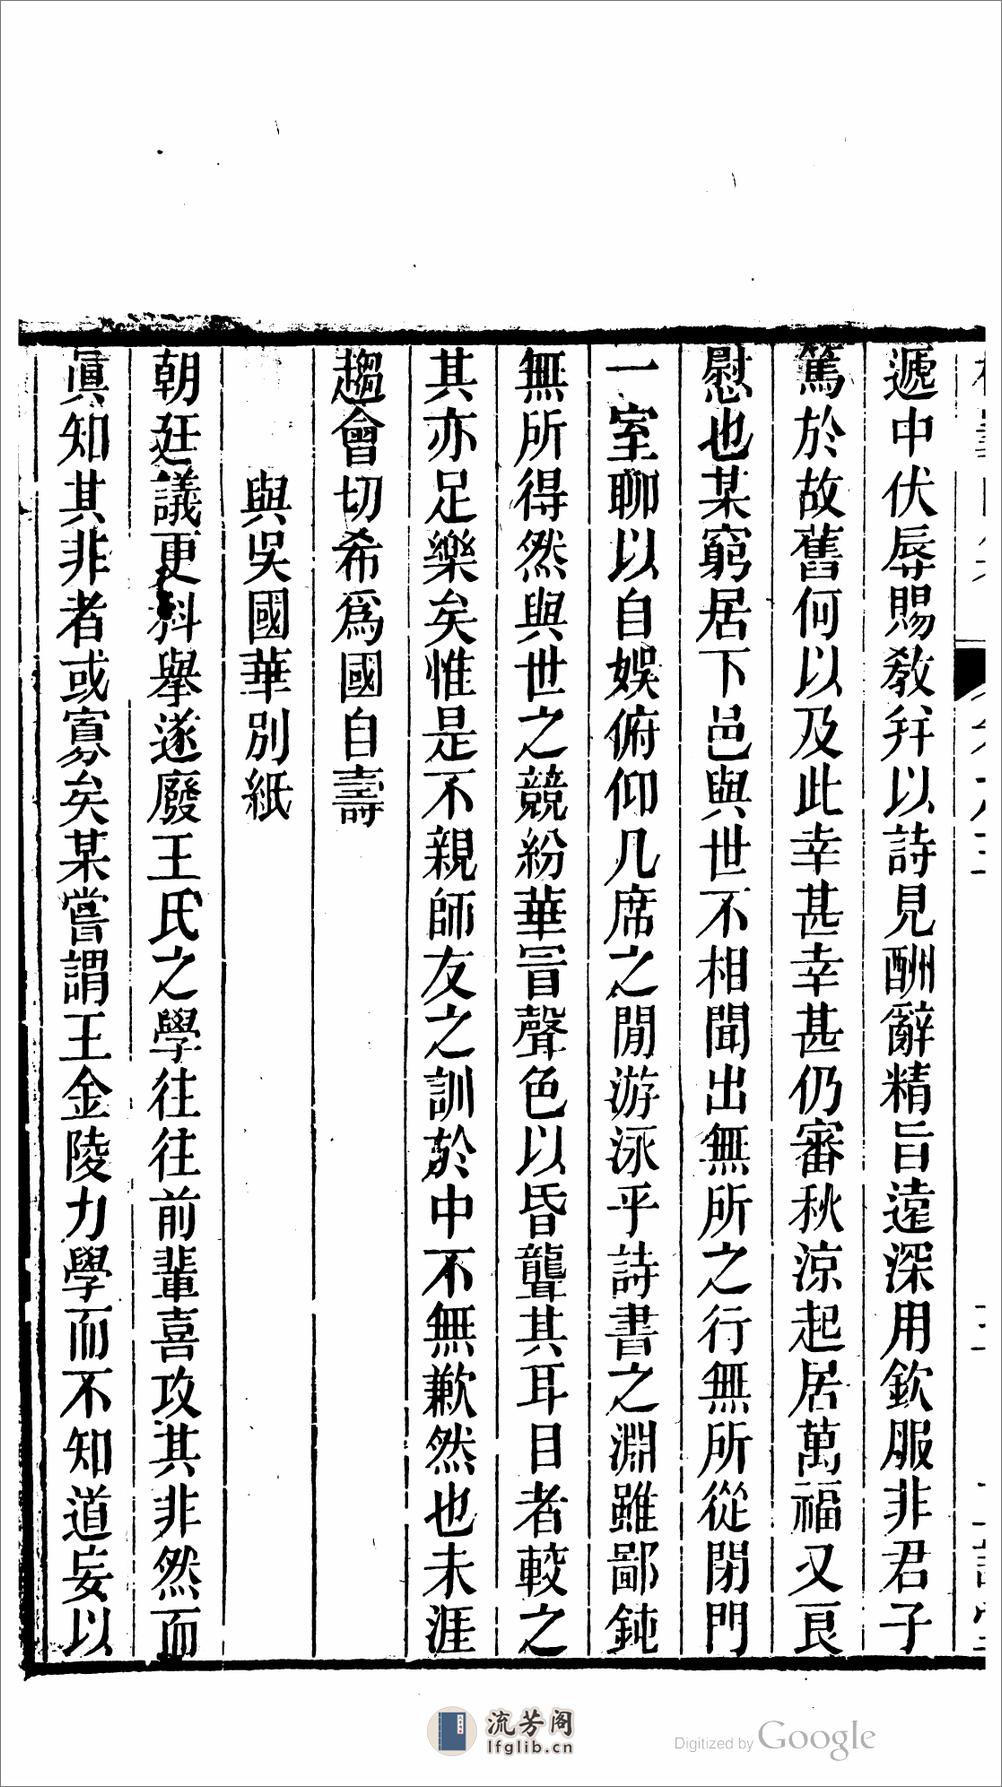 遞中伏辱賜敎幷以詩見酬辭精旨遠深用欽服非君子
篤於故舊何以及此幸甚幸甚仍審秋涼起居萬福又良
慰也某窮居下邑與世不相聞出無所之行無所從閉門
一室聊以自娛俯仰几席之閒游泳乎詩書之淵雖鄙鈍
無所得然與世之競紛華冒聲色以昏聾其耳目者較之
其亦足樂矣惟是不親師友之訓於中不無歉然也未涯
趨會切希爲國自壽
與吳國華別紙
朝廷議更科舉遂廢王氏之學往往前輩喜攻其非然而
眞知其非者或寡矣某嘗謂王金陵力學而不知道妄以
流芳阁
lfglib.cn
Digitized by Google